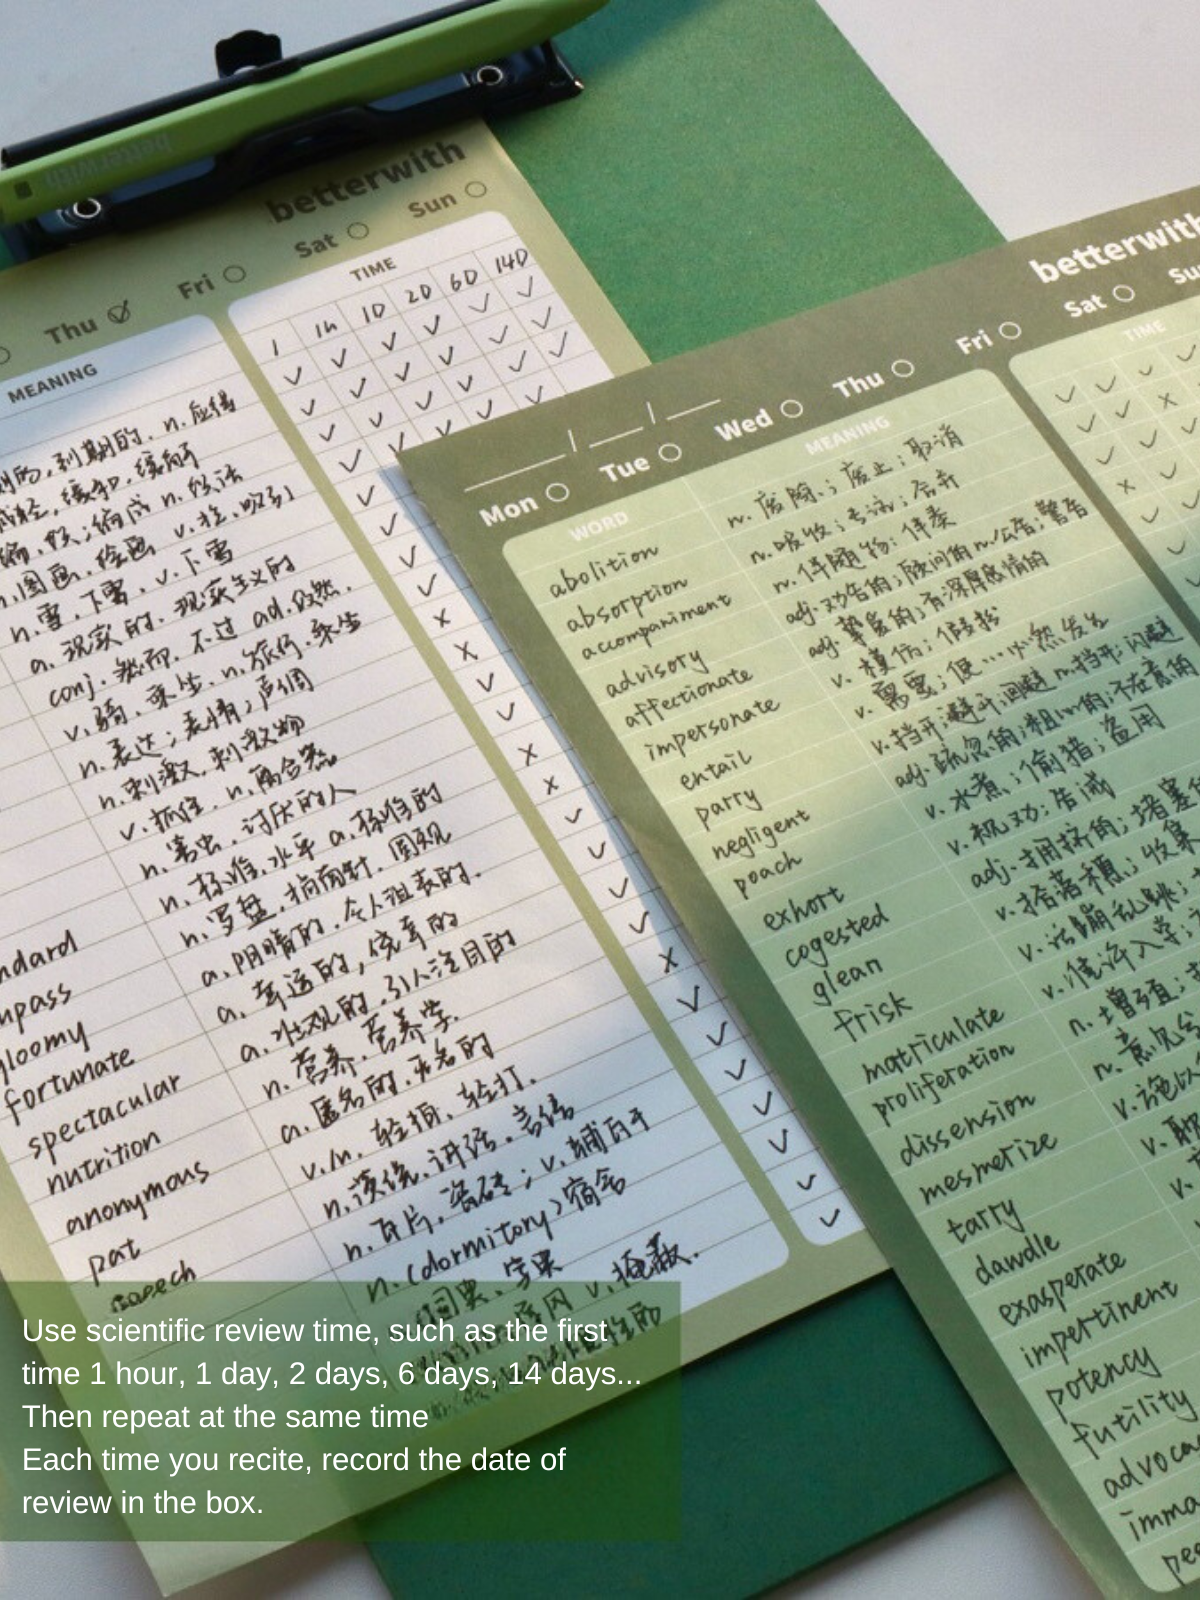 betterwith
Thu
Fri
Sat
Sun
MEANING
TIME
1 1h 1D 2D 6D 14D
到期的. n. 应得
缓和, 缓解
编成 n. 似法
n. 图画. 绘画 v. 拉. 吸引
n. 雪. 下雪. v. 下雪
a. 现实的. 现实主义的
conj. 然而. 不过 ad. 仍然.
v. 骑. 乘坐. n. 旅行. 乘坐
n. 表达; 表情; 声调
n. 刺激. 刺激物
v. 抓住. n.
n. 害虫. 讨厌的人
n. 标准. 水平 a. 标准的
n. 罗盘. 指南针. 圆规
ndard
a. 阴暗的. 令人沮丧的.
mpass
a. 幸运的, 侥幸的
loomy
a. 壮观的. 引人注目的
fortunate
n. 营养. 营养学.
spectacular
a. 匿名的. 无名的
nutrition
v./n. 轻拍. 轻打.
anonymous
n. 演说. 讲话. 言语
pat
n. 瓦片. 瓷砖; v. 铺瓦于
n. (dormitory) 宿舍
v. 掩蔽.
betterwith
Mon
Tue
Wed
Thu
Fri
Sat
Su
WORD
MEANING
TIME
abolition n. 废除; 废止; 取消
absorption n. 吸收; 专注; 合并
accompaniment n. 伴随物; 伴奏
advisory adj. 劝告的; 顾问的 n. 公告; 警告
affectionate adj. 挚爱的; 有深厚感情的
impersonate v. 模仿; 假扮
entail v. 需要; 使…必然发生
parry v. 挡开; 避开; 回避 n. 挡开; 闪避
negligent adj. 疏忽的; 粗心的; 不在意的
poach v. 水煮; 偷猎; 盗用
exhort v. 规劝; 告诫
cogested adj. 拥挤的; 堵塞
glean v. 拾落穗; 收集
frisk v. 活蹦乱跳;
matriculate v. 准许入学;
proliferation n. 增殖;
dissension n. 意见分
mesmerize v. 施以
tarry v.
dawdle v.
exasperate
impertinent
potency
futility
advoca
imma
pee
Use scientific review time, such as the first
time 1 hour, 1 day, 2 days, 6 days, 14 days...
Then repeat at the same time
Each time you recite, record the date of
review in the box.